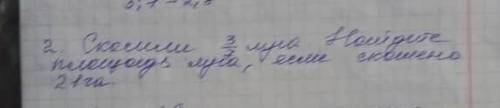 2. Скосили 3/7 луга Найдите
площадь луга, если скошено
21га.